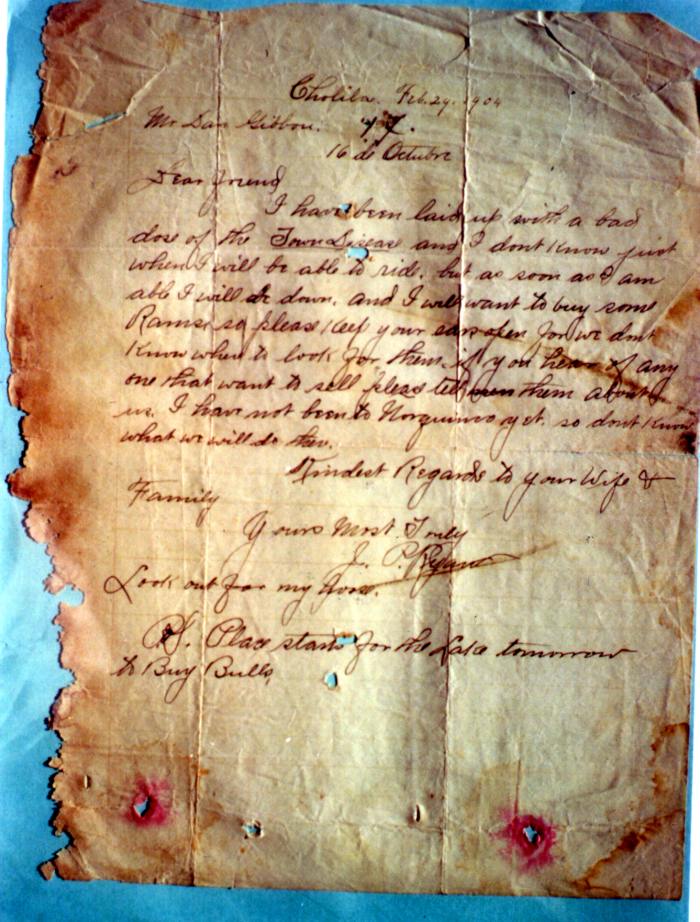 Cholila. Feb. 29. 1904
Mr Dan Gibbon.
16 de Octubre
Dear friend
I have been laid up with a bad
dose of the Town Disease and I dont Know just
when I will be able to ride. but as soon as I am
able I will be down. and I will want to buy some
Rams. so please Keep your ears open for we dont
Know when to look for them. if you hear of any
one that want to sell pleas tell them about
us. I have not been to Norquinco yet. so dont Know
what we will do
Kindest Regards to your Wife &
Family
Yours Most Truly
J. P. Ryan
Look out for my horse.
P.S. Place starts for the Lake tomorrow
to Buy Bulls